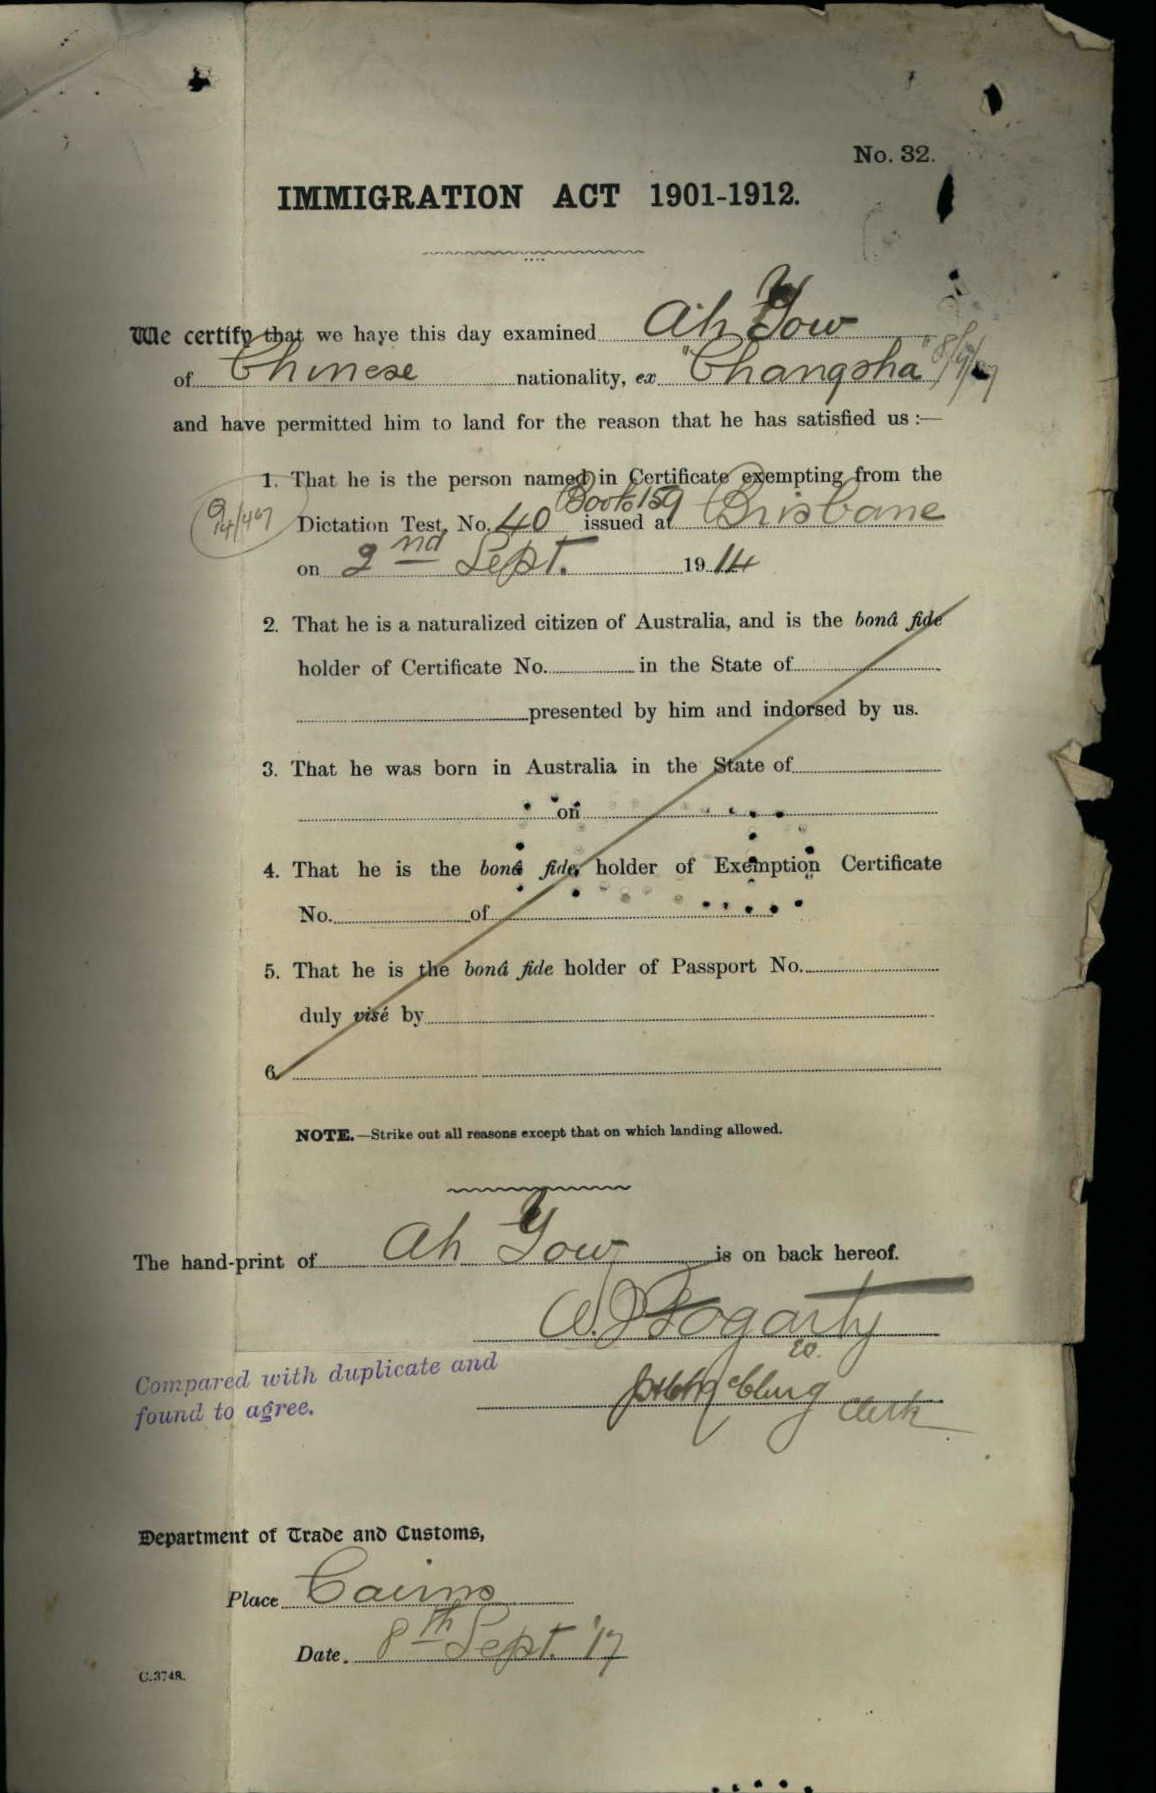 No. 32.
IMMIGRATION ACT 1901-1912.
We certify that we have this day examined Ah Yow
of Chinese nationality, ex "Changsha" 8/9/17
and have permitted him to land for the reason that he has satisfied us :—
1. That he is the person named in Certificate exempting from the
Book 159
Dictation Test, No. 40 issued at Brisbane
on 2nd Sept. 1914
2. That he is a naturalized citizen of Australia, and is the bonâ fide
holder of Certificate No. in the State of
presented by him and indorsed by us.
3. That he was born in Australia in the State of
on
4. That he is the bonâ fide holder of Exemption Certificate
No. of
5. That he is the bonâ fide holder of Passport No.
duly visé by
6.
NOTE.—Strike out all reasons except that on which landing allowed.
The hand-print of Ah Yow is on back hereof.
Fogarty
Compared with duplicate and
found to agree.
Clerk
Department of Trade and Customs,
Place Cairns
Date. 8th Sept. '17
C.3748.